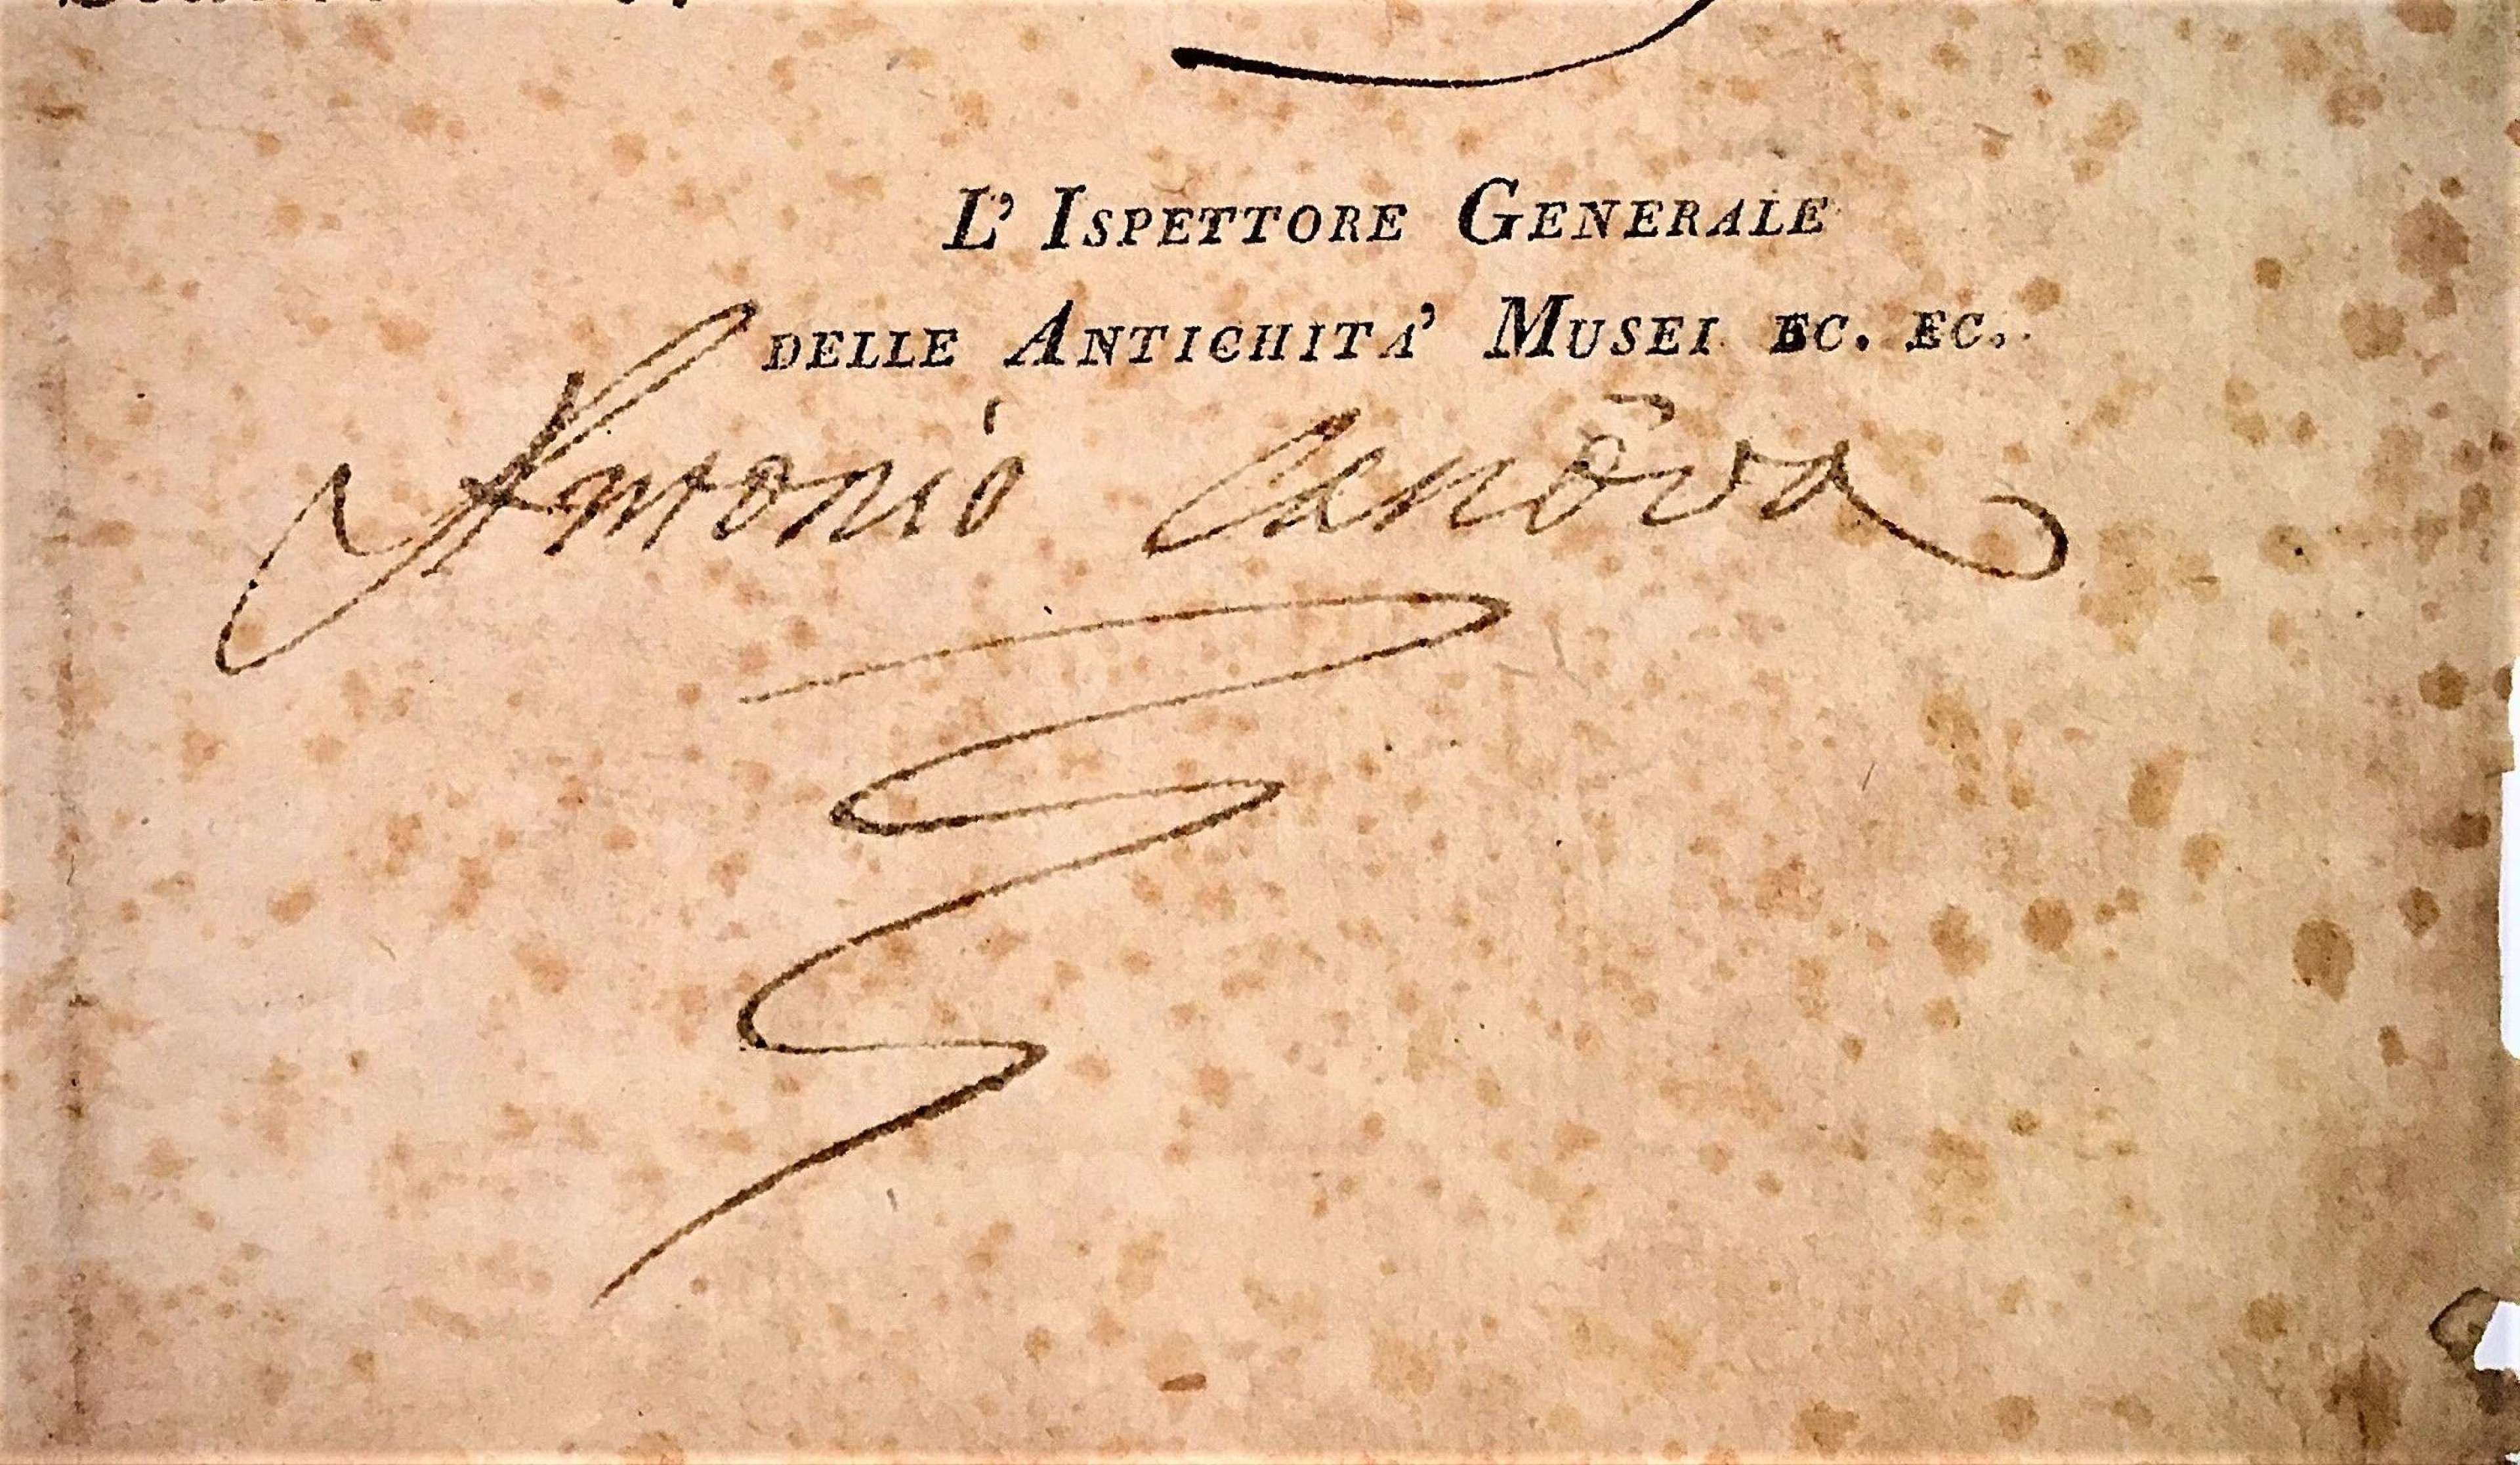 L' ISPETTORE GENERALE
DELLE ANTICHITA' MUSEI EC. EC.
Antonio Canôva